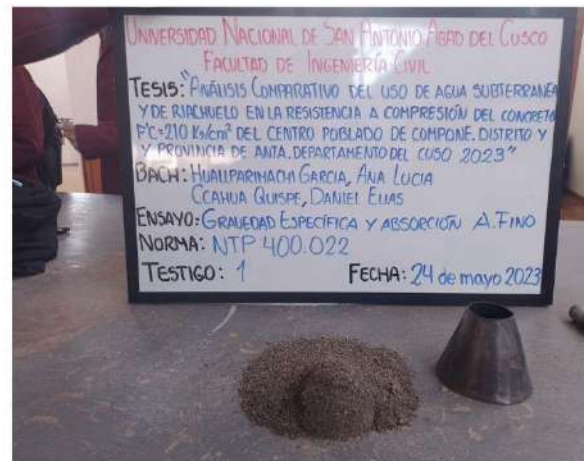 UNIVERSIDAD NACIONAL DE SAN ANTONIO ABAD DEL CUSCO
FACULTAD DE INGENIERÍA CIVIL
TESIS: "ANÁLISIS COMPARATIVO DEL USO DE AGUA SUBTERRANEA
Y DE RIACHUELO EN LA RESISTENCIA A COMPRESIÓN DEL CONCRETO
F'C=210 KG/CM² DEL CENTRO POBLADO DE COMPONE. DISTRITO Y
Y PROVINCIA DE ANTA. DEPARTAMENTO DEL CUSO 2023"
BACH: HUALLPARIMACHI GARCIA, ANA LUCIA
CCAHUA QUISPE, DANIEL ELIAS
ENSAYO: GRAVEDAD ESPECÍFICA Y ABSORCIÓN A. FINO
NORMA: NTP 400.022
TESTIGO: 1 FECHA: 24 de mayo 2023